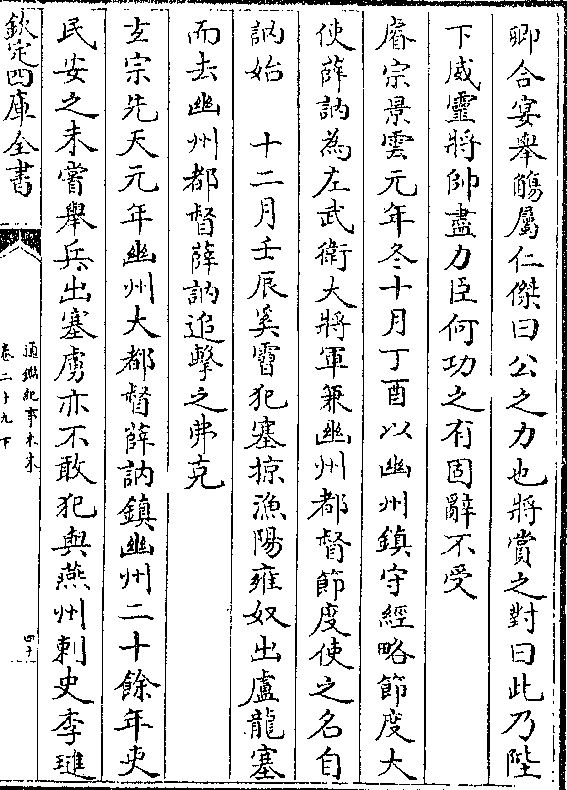 卿合宴舉觴屬仁傑曰公之力也將賞之對曰此乃陛
下威靈將帥盡力臣何功之有固辭不受
睿宗景雲元年冬十月丁酉以幽州鎮守經略節度大
使薛訥為左武衛大將軍兼幽州都督節度使之名自
訥始　十二月壬辰奚霫犯塞掠漁陽雍奴出盧龍塞
而去幽州都督薛訥追擊之弗克
玄宗先天元年幽州大都督薛訥鎮幽州二十餘年吏
民安之未嘗舉兵出塞虜亦不敢犯與燕州刺史李璡
欽定四庫全書
通鑑紀事本末
卷二十九下
四十